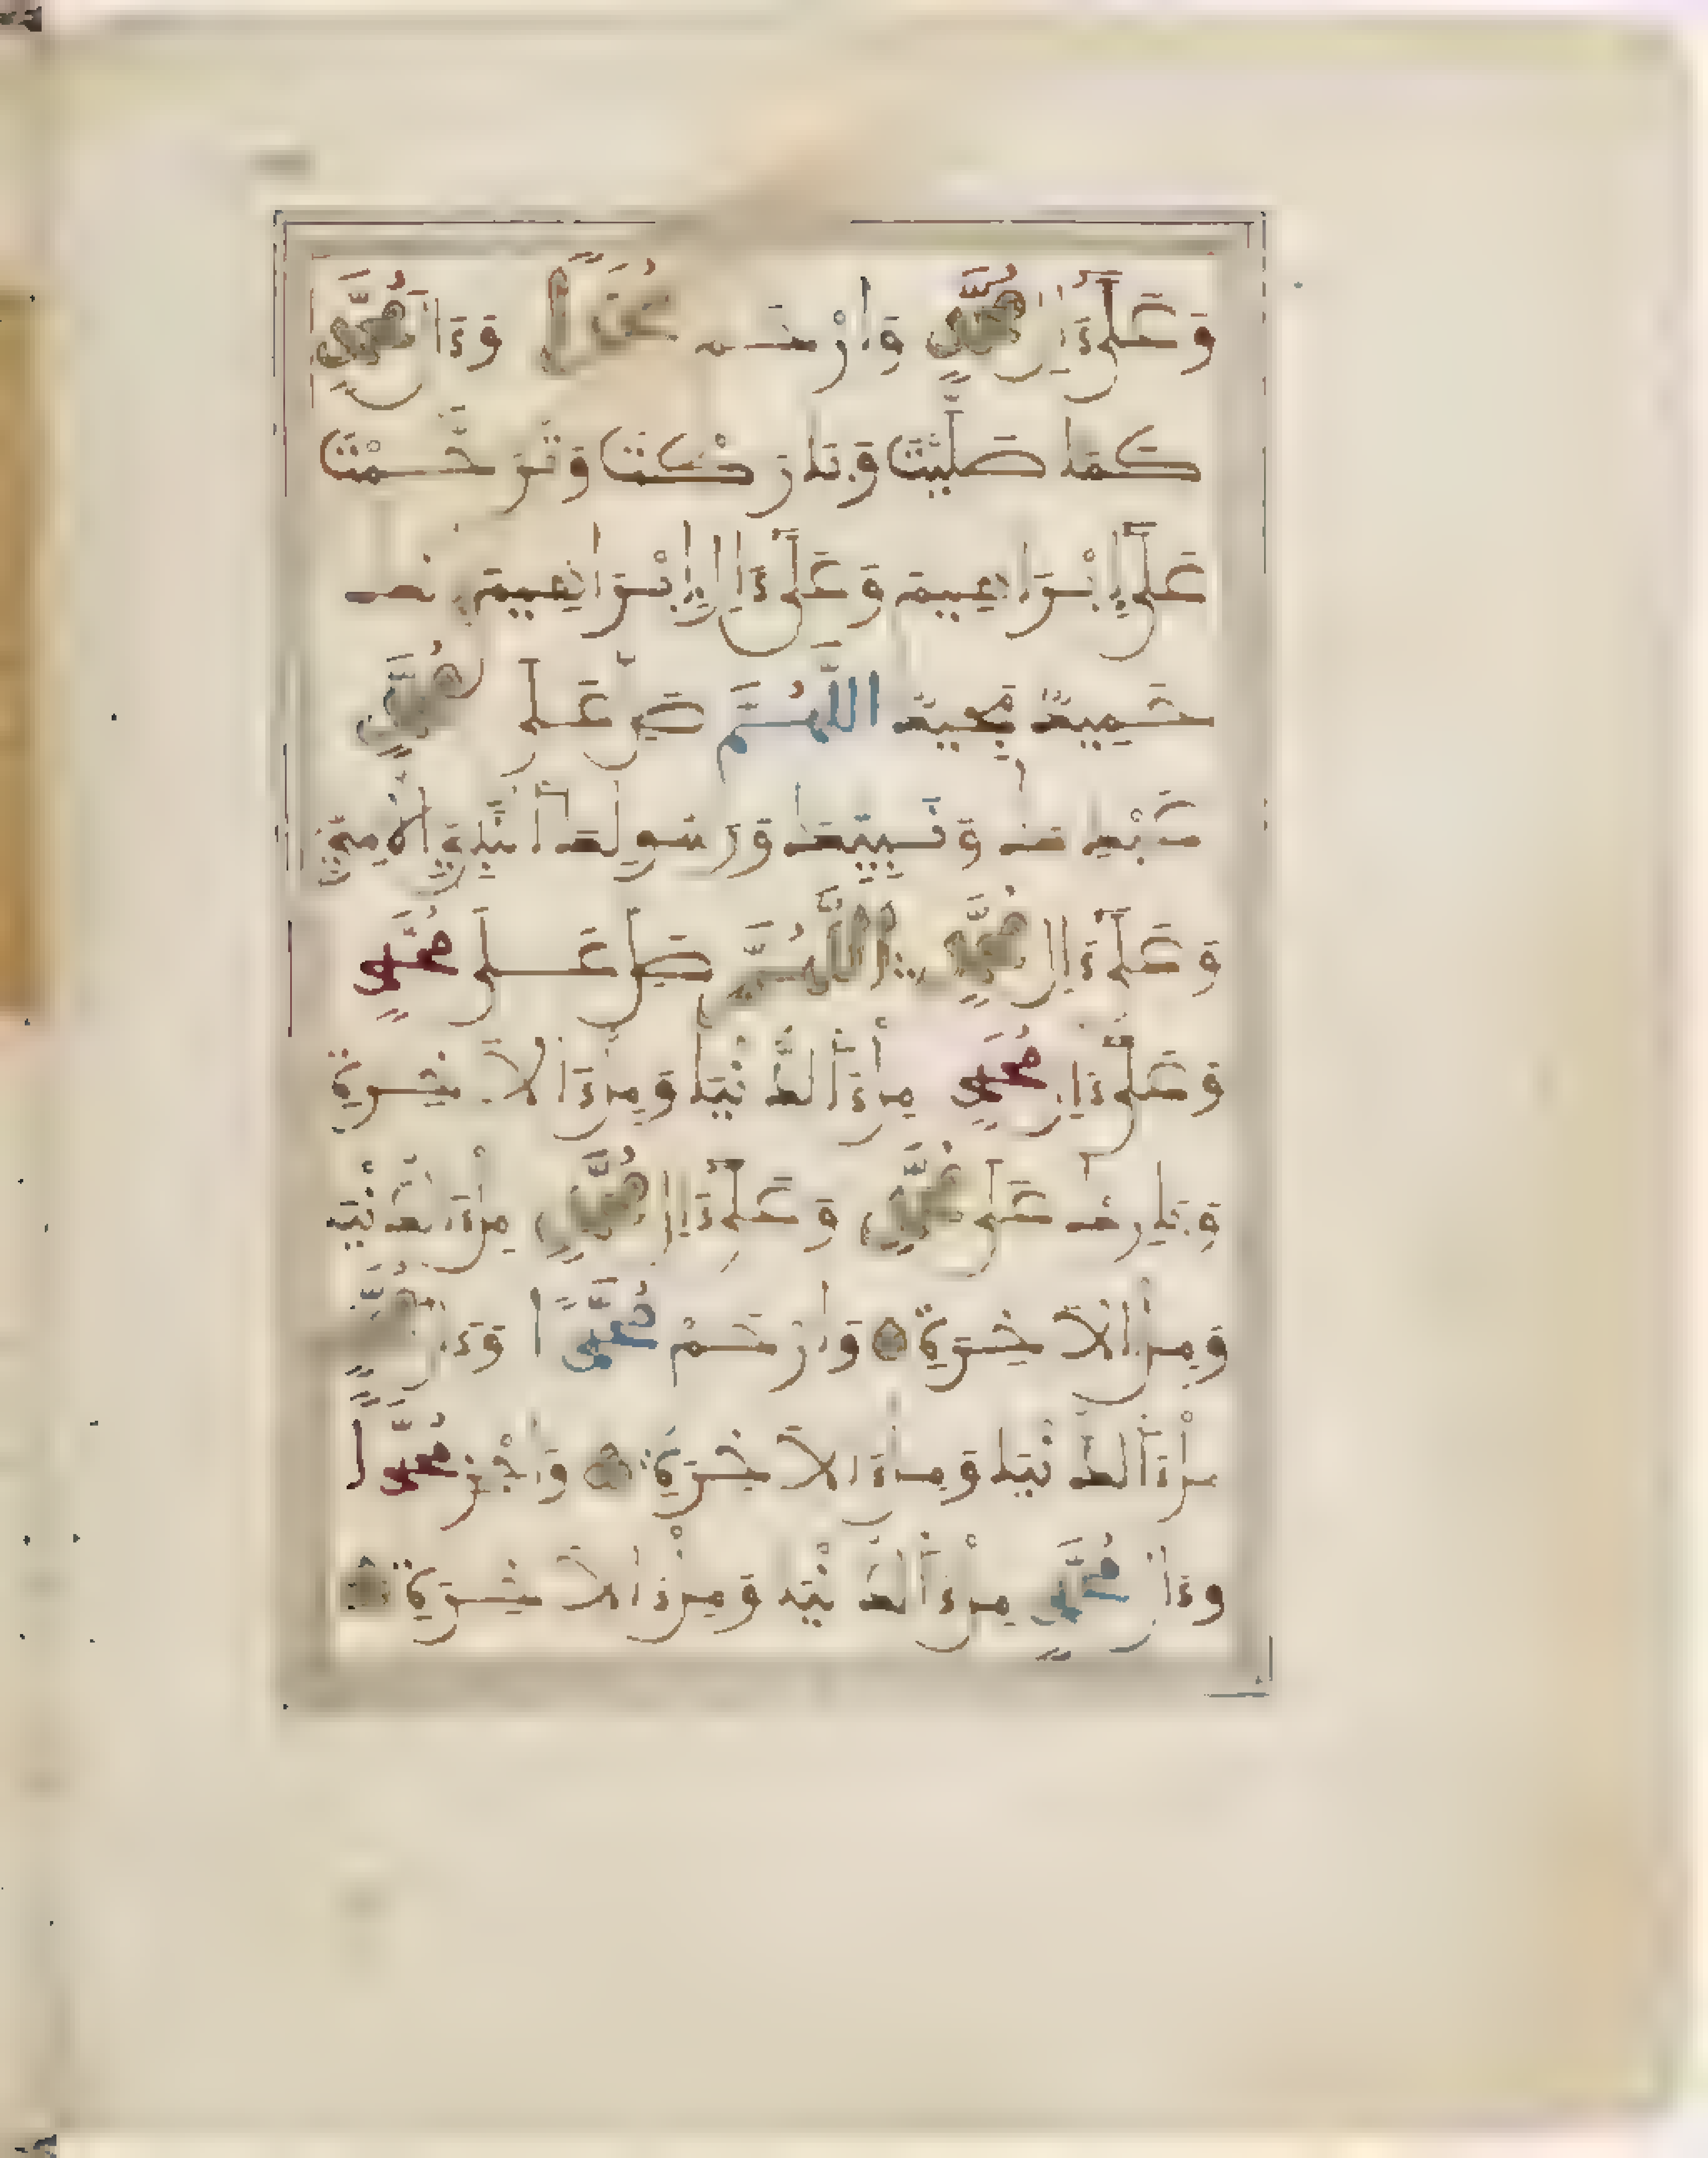 وَعَلَىٰ ءَالِ مُحَمَّدٍ وَارْحَمْ مُحَمَّدًا وَءَالَ مُحَمَّدٍ
كَمَا صَلَّيْتَ وَبَارَكْتَ وَتَرَحَّمْتَ
عَلَىٰ إِبْرَاهِيمَ وَعَلَىٰ ءَالِ إِبْرَاهِيمَ إِنَّكَ
حَمِيدٌ مَجِيدٌ اللَّهُمَّ صَلِّ عَلَىٰ مُحَمَّدٍ
عَبْدِكَ وَنَبِيِّكَ وَرَسُولِكَ النَّبِيِّ الْأُمِّيِّ
وَعَلَىٰ ءَالِ مُحَمَّدٍ اللَّهُمَّ صَلِّ عَلَىٰ مُحَمَّدٍ
وَعَلَىٰ ءَالِ مُحَمَّدٍ مِلْءَ الدُّنْيَا وَمِلْءَ الْآخِرَةِ
وَبَارِكْ عَلَىٰ مُحَمَّدٍ وَعَلَىٰ ءَالِ مُحَمَّدٍ مِلْءَ الدُّنْيَا
وَمِلْءَ الْآخِرَةِ وَارْحَمْ مُحَمَّدًا وَءَالَ مُحَمَّدٍ
مِلْءَ الدُّنْيَا وَمِلْءَ الْآخِرَةِ وَاجْزِ مُحَمَّدًا
وَءَالَ مُحَمَّدٍ مِلْءَ الدُّنْيَا وَمِلْءَ الْآخِرَةِ